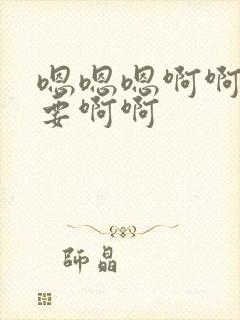 嗯嗯嗯啊啊
要啊啊
師晶